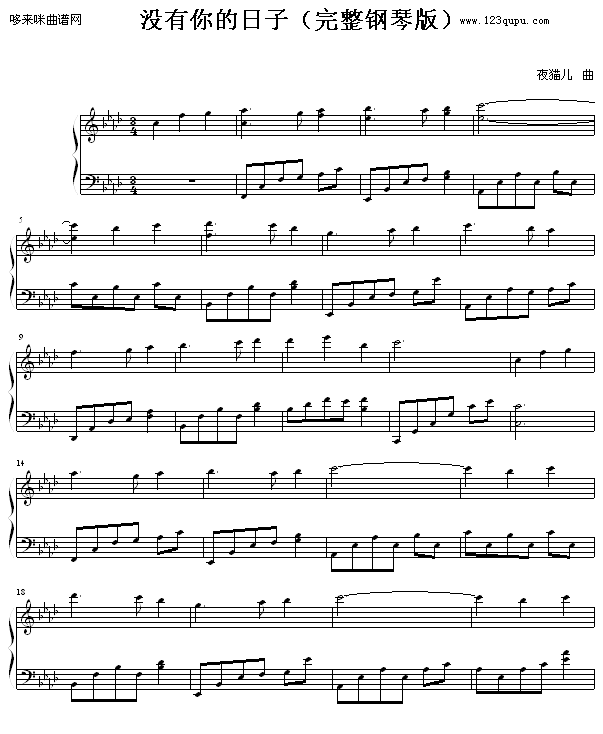 哆来咪曲谱网
没有你的日子（完整钢琴版）
www.123qupu.com
夜猫儿 曲
3
4
3
4
5
9
14
18